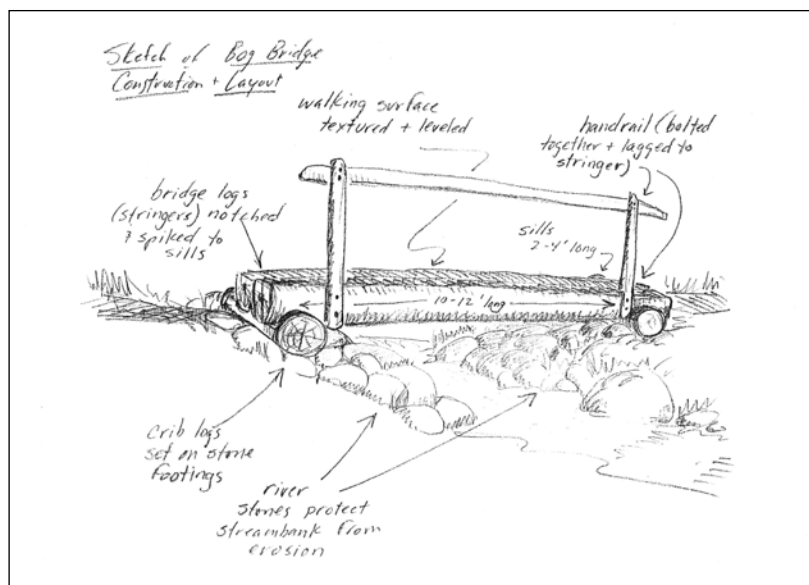 Sketch of Bog Bridge
Construction + Layout
walking surface
textured + leveled
handrail (bolted
together + lagged to
stringer)
bridge logs
(stringers) notched
& spiked to
sills
sills
2-4' long
10-12' long
crib logs
set on stone
footings
river
stones protect
streambank from
erosion